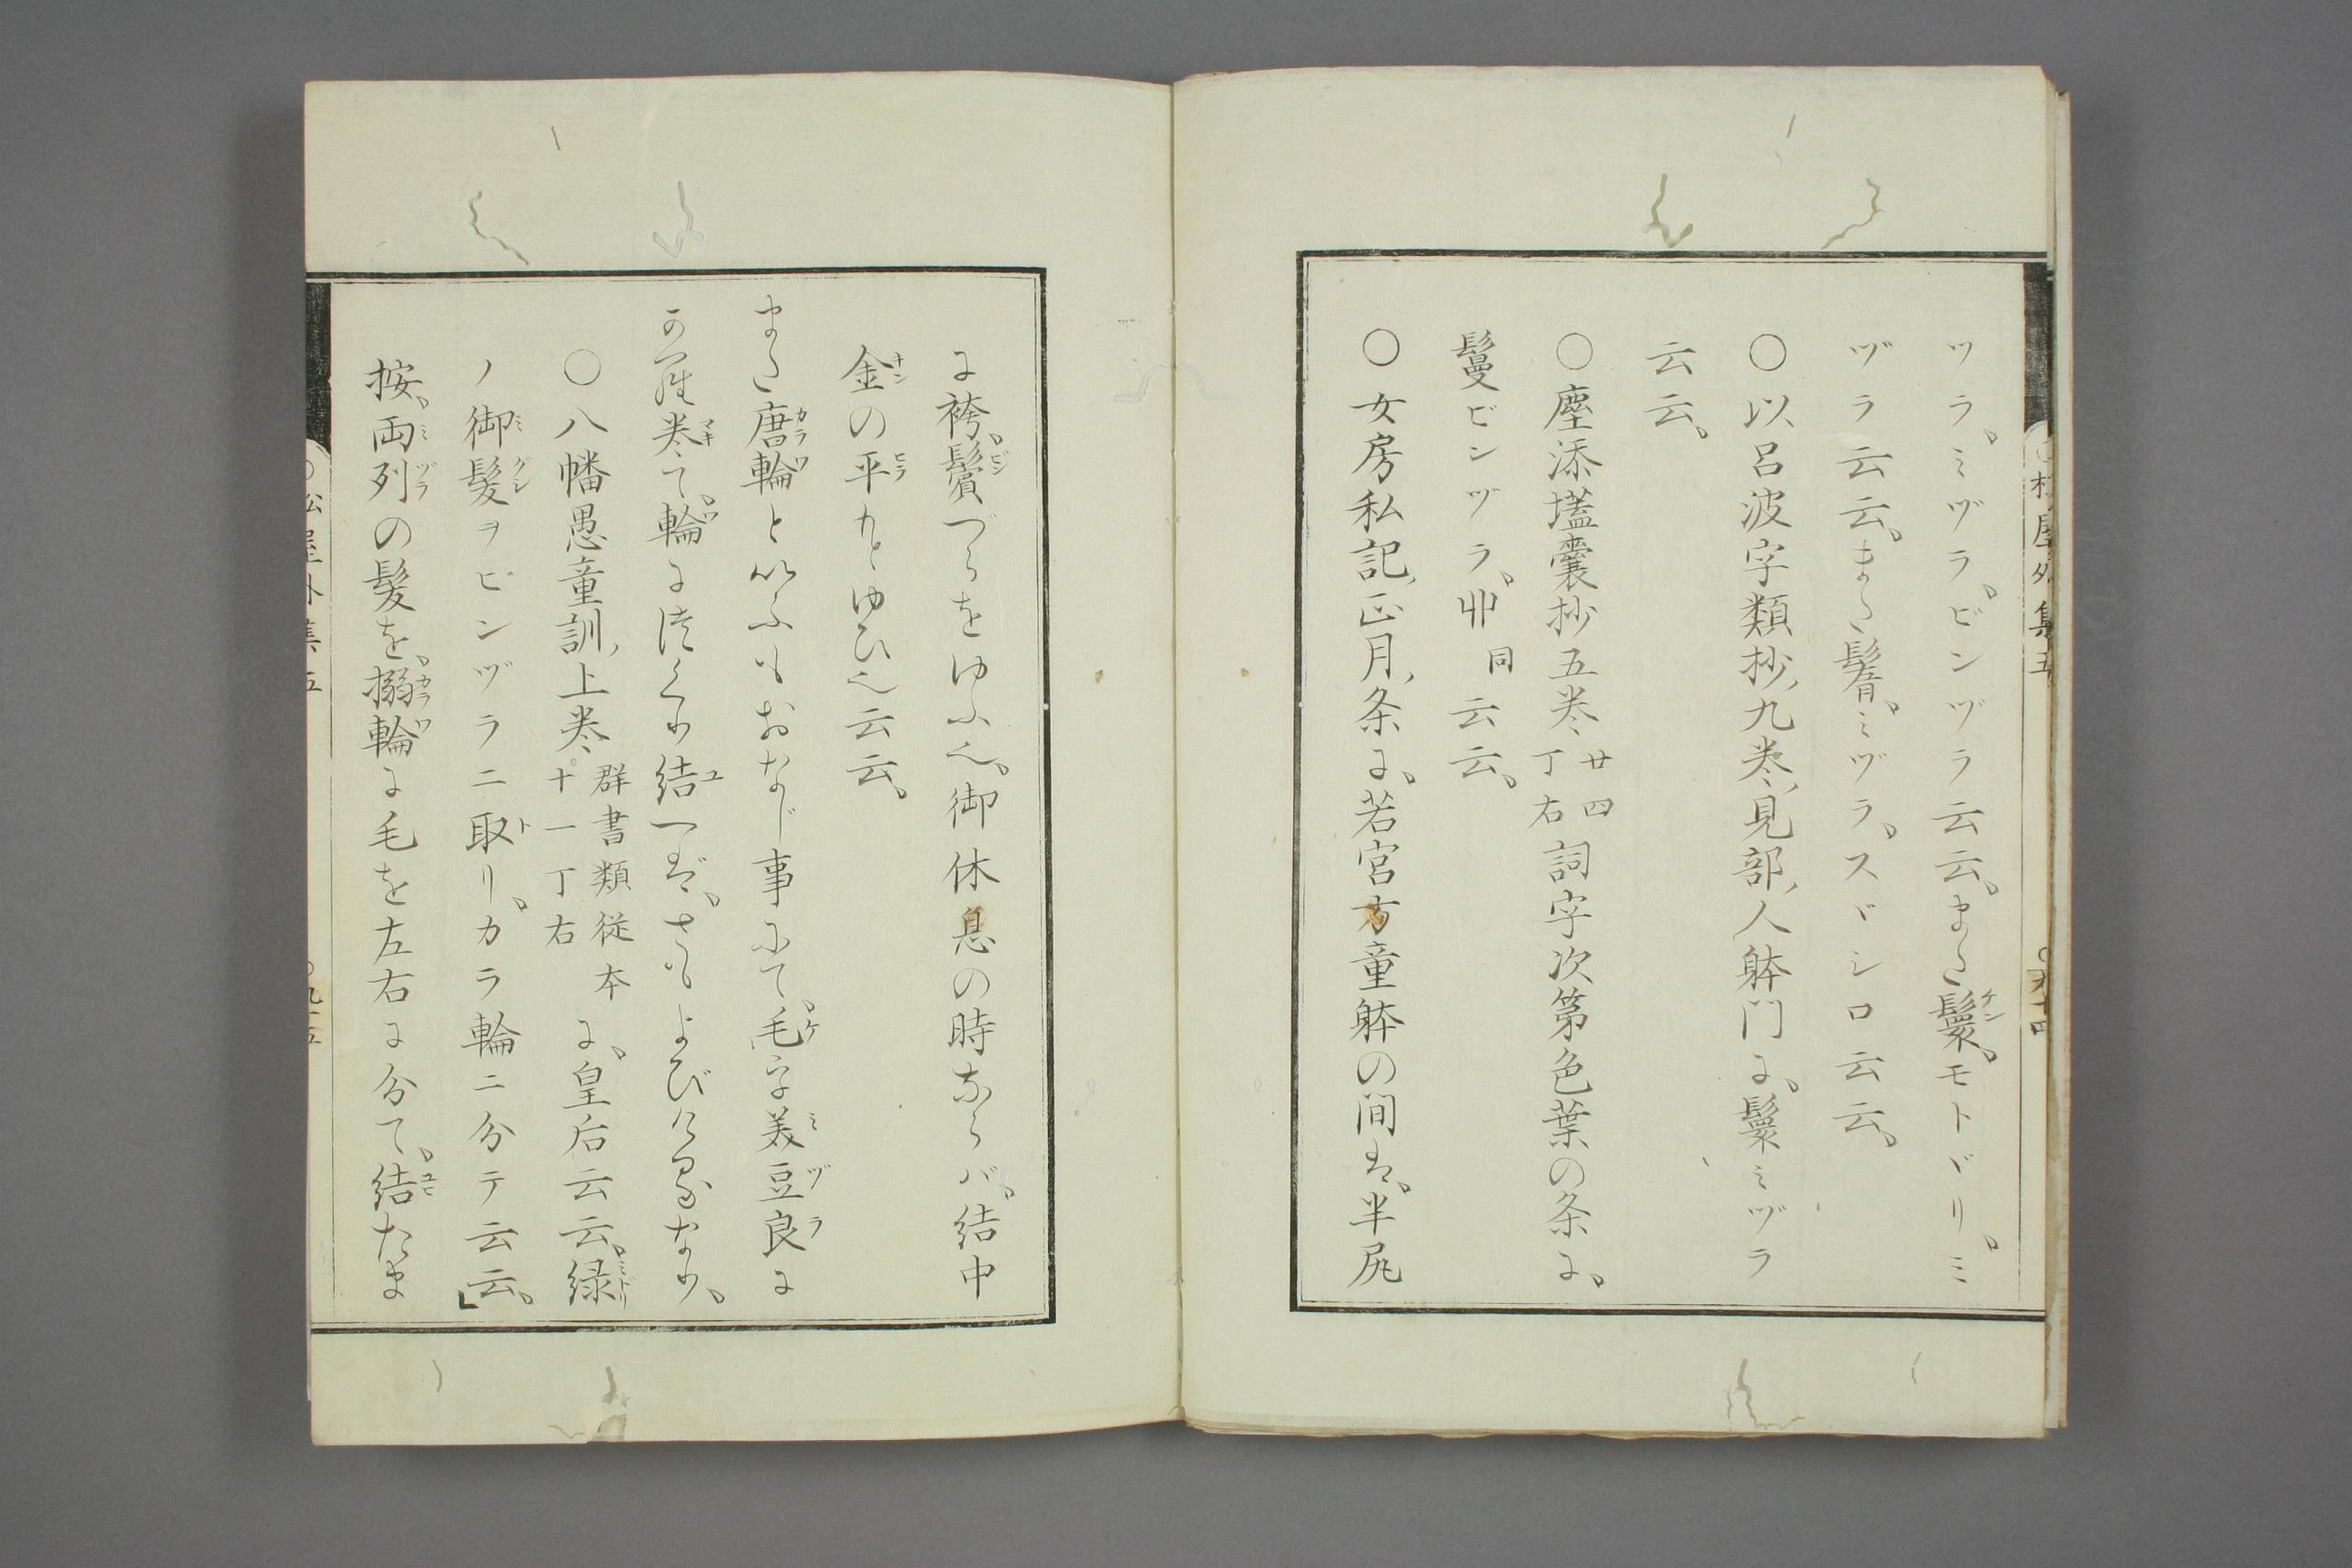 ツラ、ミヅラ、ビンヅラ云云、また鬟、ケンモトヾリ、ミ
ヅラ云云、また鬠、ミヅラ、スヾシロ云云、
○以呂波字類抄、九巻、見部、人躰門に、鬟ミヅラ
云云、
○塵添壒囊抄五巻廿四丁右詞字次第色葉の条に、
鬘ビンヅラ、丱同云云、
○女房私記、正月、条に、若宮方童躰の間は、半尻
に袴、鬢ビンづらをゆふ也、御休息の時ならバ、結中
金キンの平ヒラカもゆひ也云云、
また唐カラ輪ワと以ふもおなじ事にて、毛ケ字美ミ豆ヅ良ラに
の羅巻マキて、輪ワにほくり結ユへば、さもよびけるなり、
○八幡愚童訓、上巻群書類従本十一丁右に、皇后云云、緑ミドリ
ノ御ミ髪グシヲビンヅラニ取トリ、カラ輪ニ分テ云云、」
按、両ミ列ヅラの髪を、搦カラ輪ワに毛を左右に分て、結ユヒたま
○松屋外集五
○九十四
○松屋外集五
○九十五